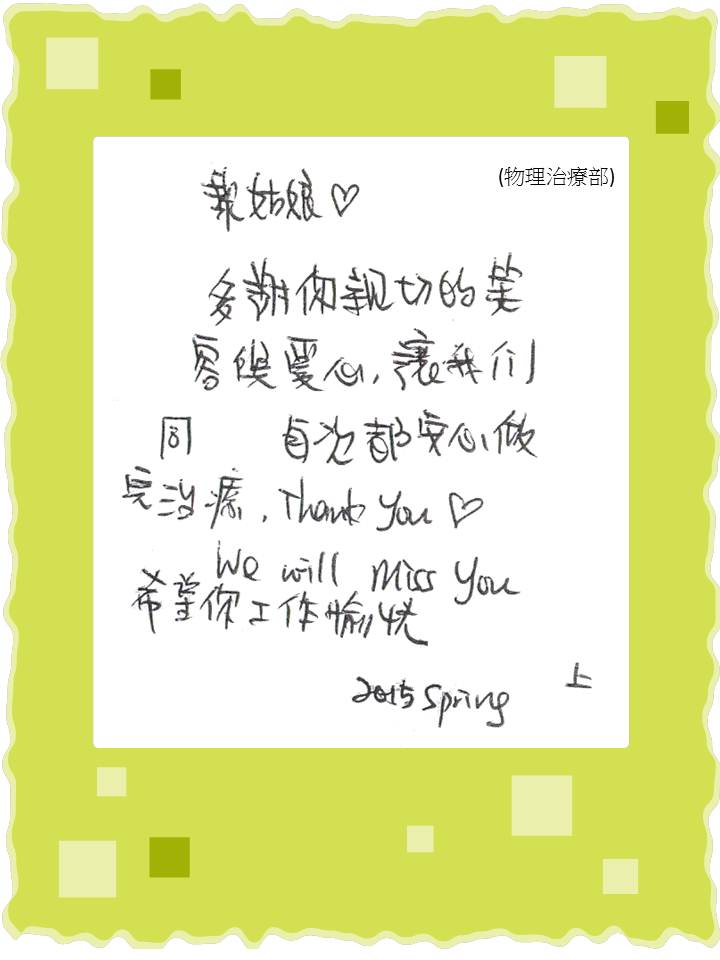 (物理治療部)
姑娘♡
多謝你親切的笑
容俱愛心, 讓我们
同 每次都安心做
完治療, Thank You ♡
We will miss you
希望你工作愉快
上
2015 Spring